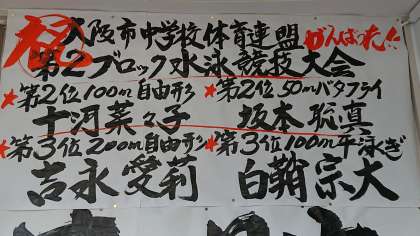 祝 大阪市中学校体育連盟 がんばった!!
第2ブロック水泳競技大会
★第2位100m自由形 ★第2位50mバタフライ
十河菜々子 坂本聡真
★第3位200m自由形 ★第3位100m平泳ぎ
吉永愛莉 白鞘宗大